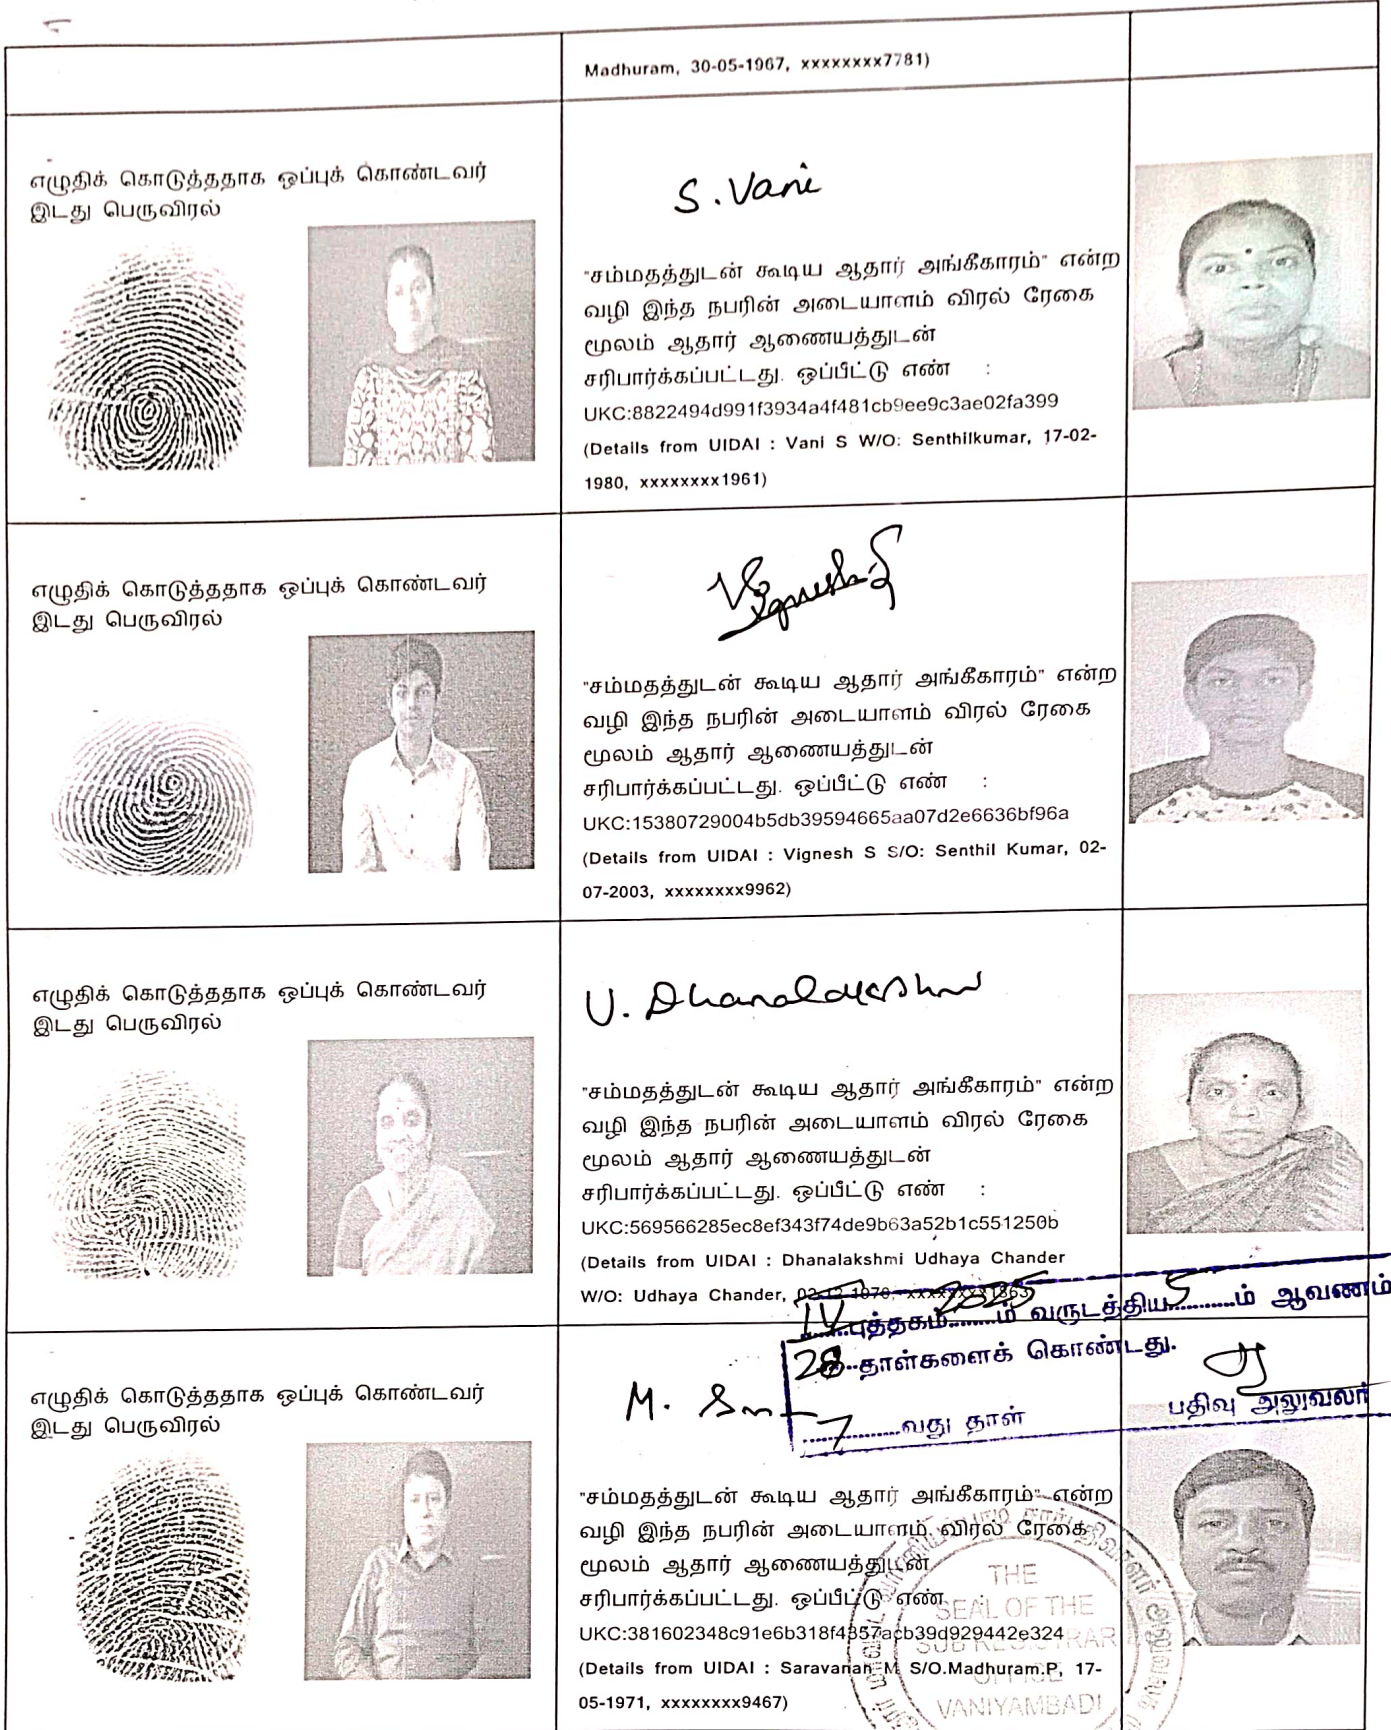 Madhuram, 30-05-1967, xxxxxxxx7781)
எழுதிக் கொடுத்ததாக ஒப்புக் கொண்டவர்
இடது பெருவிரல்
S. Vani
"சம்மதத்துடன் கூடிய ஆதார் அங்கீகாரம்" என்ற
வழி இந்த நபரின் அடையாளம் விரல் ரேகை
மூலம் ஆதார் ஆணையத்துடன்
சரிபார்க்கப்பட்டது. ஒப்பீட்டு எண் :
UKC:8822494d991f3934a4f481cb9ee9c3ae02fa399
(Details from UIDAI : Vani S W/O: Senthilkumar, 17-02-
1980, xxxxxxxx1961)
எழுதிக் கொடுத்ததாக ஒப்புக் கொண்டவர்
இடது பெருவிரல்
Vignesh.S
"சம்மதத்துடன் கூடிய ஆதார் அங்கீகாரம்" என்ற
வழி இந்த நபரின் அடையாளம் விரல் ரேகை
மூலம் ஆதார் ஆணையத்துடன்
சரிபார்க்கப்பட்டது. ஒப்பீட்டு எண் :
UKC:15380729004b5db39594665aa07d2e6636bf96a
(Details from UIDAI : Vignesh S S/O: Senthil Kumar, 02-
07-2003, xxxxxxxx9962)
எழுதிக் கொடுத்ததாக ஒப்புக் கொண்டவர்
இடது பெருவிரல்
U. Dhanalakshmi
"சம்மதத்துடன் கூடிய ஆதார் அங்கீகாரம்" என்ற
வழி இந்த நபரின் அடையாளம் விரல் ரேகை
மூலம் ஆதார் ஆணையத்துடன்
சரிபார்க்கப்பட்டது. ஒப்பீட்டு எண் :
UKC:569566285ec8ef343f74de9b63a52b1c551250b
(Details from UIDAI : Dhanalakshmi Udhaya Chander
W/O: Udhaya Chander,
IV புத்தகம் 2025 ம் வருடத்திய 5 ம் ஆவணம்
28 தாள்களைக் கொண்டது.
7 வது தாள்
பதிவு அலுவலர்
எழுதிக் கொடுத்ததாக ஒப்புக் கொண்டவர்
இடது பெருவிரல்
M.
"சம்மதத்துடன் கூடிய ஆதார் அங்கீகாரம்" என்ற
வழி இந்த நபரின் அடையாளம் விரல் ரேகை
மூலம் ஆதார் ஆணையத்துடன்
சரிபார்க்கப்பட்டது. ஒப்பீட்டு எண்
UKC:381602348c91e6b318f4357acb39d929442e324
(Details from UIDAI : Saravanan M S/O.Madhuram.P, 17-
05-1971, xxxxxxxx9467)
THE
SEAL OF THE
SUB REGISTRAR
OFFICE
VANIYAMBADI